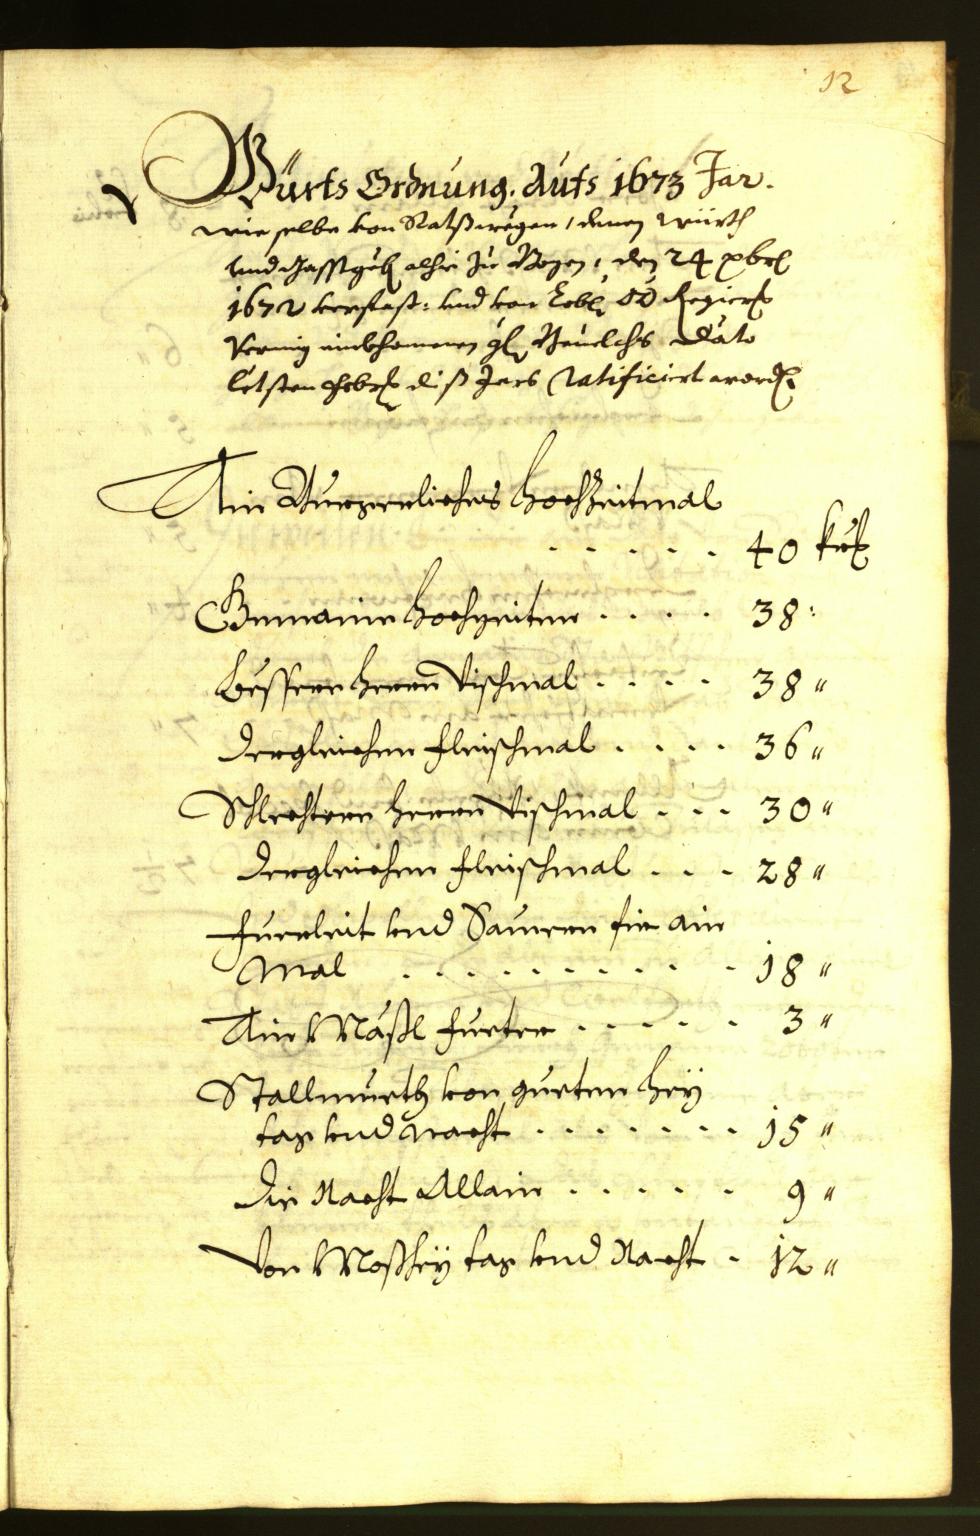 12
Würts Ordnung. Aufs 1673 Jar.
wie selbe von Statswegen, denen Würth
und Gasstgeb alhie zu Bozen, den 24 xbris
1672 verfast: und von Löbl OÖ Regier
letsten Febr diß Jars Ratificirt word.
Ain Burgerliches Hochzeitmal
. . . . . 40 kr
Gemaine Hochzeiten . . . . 38:
Bessern Herrn Vischmal . . . . 38 "
Dergleichen Fleischmal . . . . 36 "
Schlechtern Herrn Vischmal . . . 30 "
Dergleichen Fleischmal . . . 28 "
Fuerleit und Saumern für ain
Mal . . . . . . . . . . 18 "
Ain Mäßl Fueter . . . . . 3 "
Stallmueth von gueten Hey
tag und nacht . . . . . . . 15 "
Die Nacht Allain . . . . . 9 "
Von Moßhey tag und Nacht . 12 "